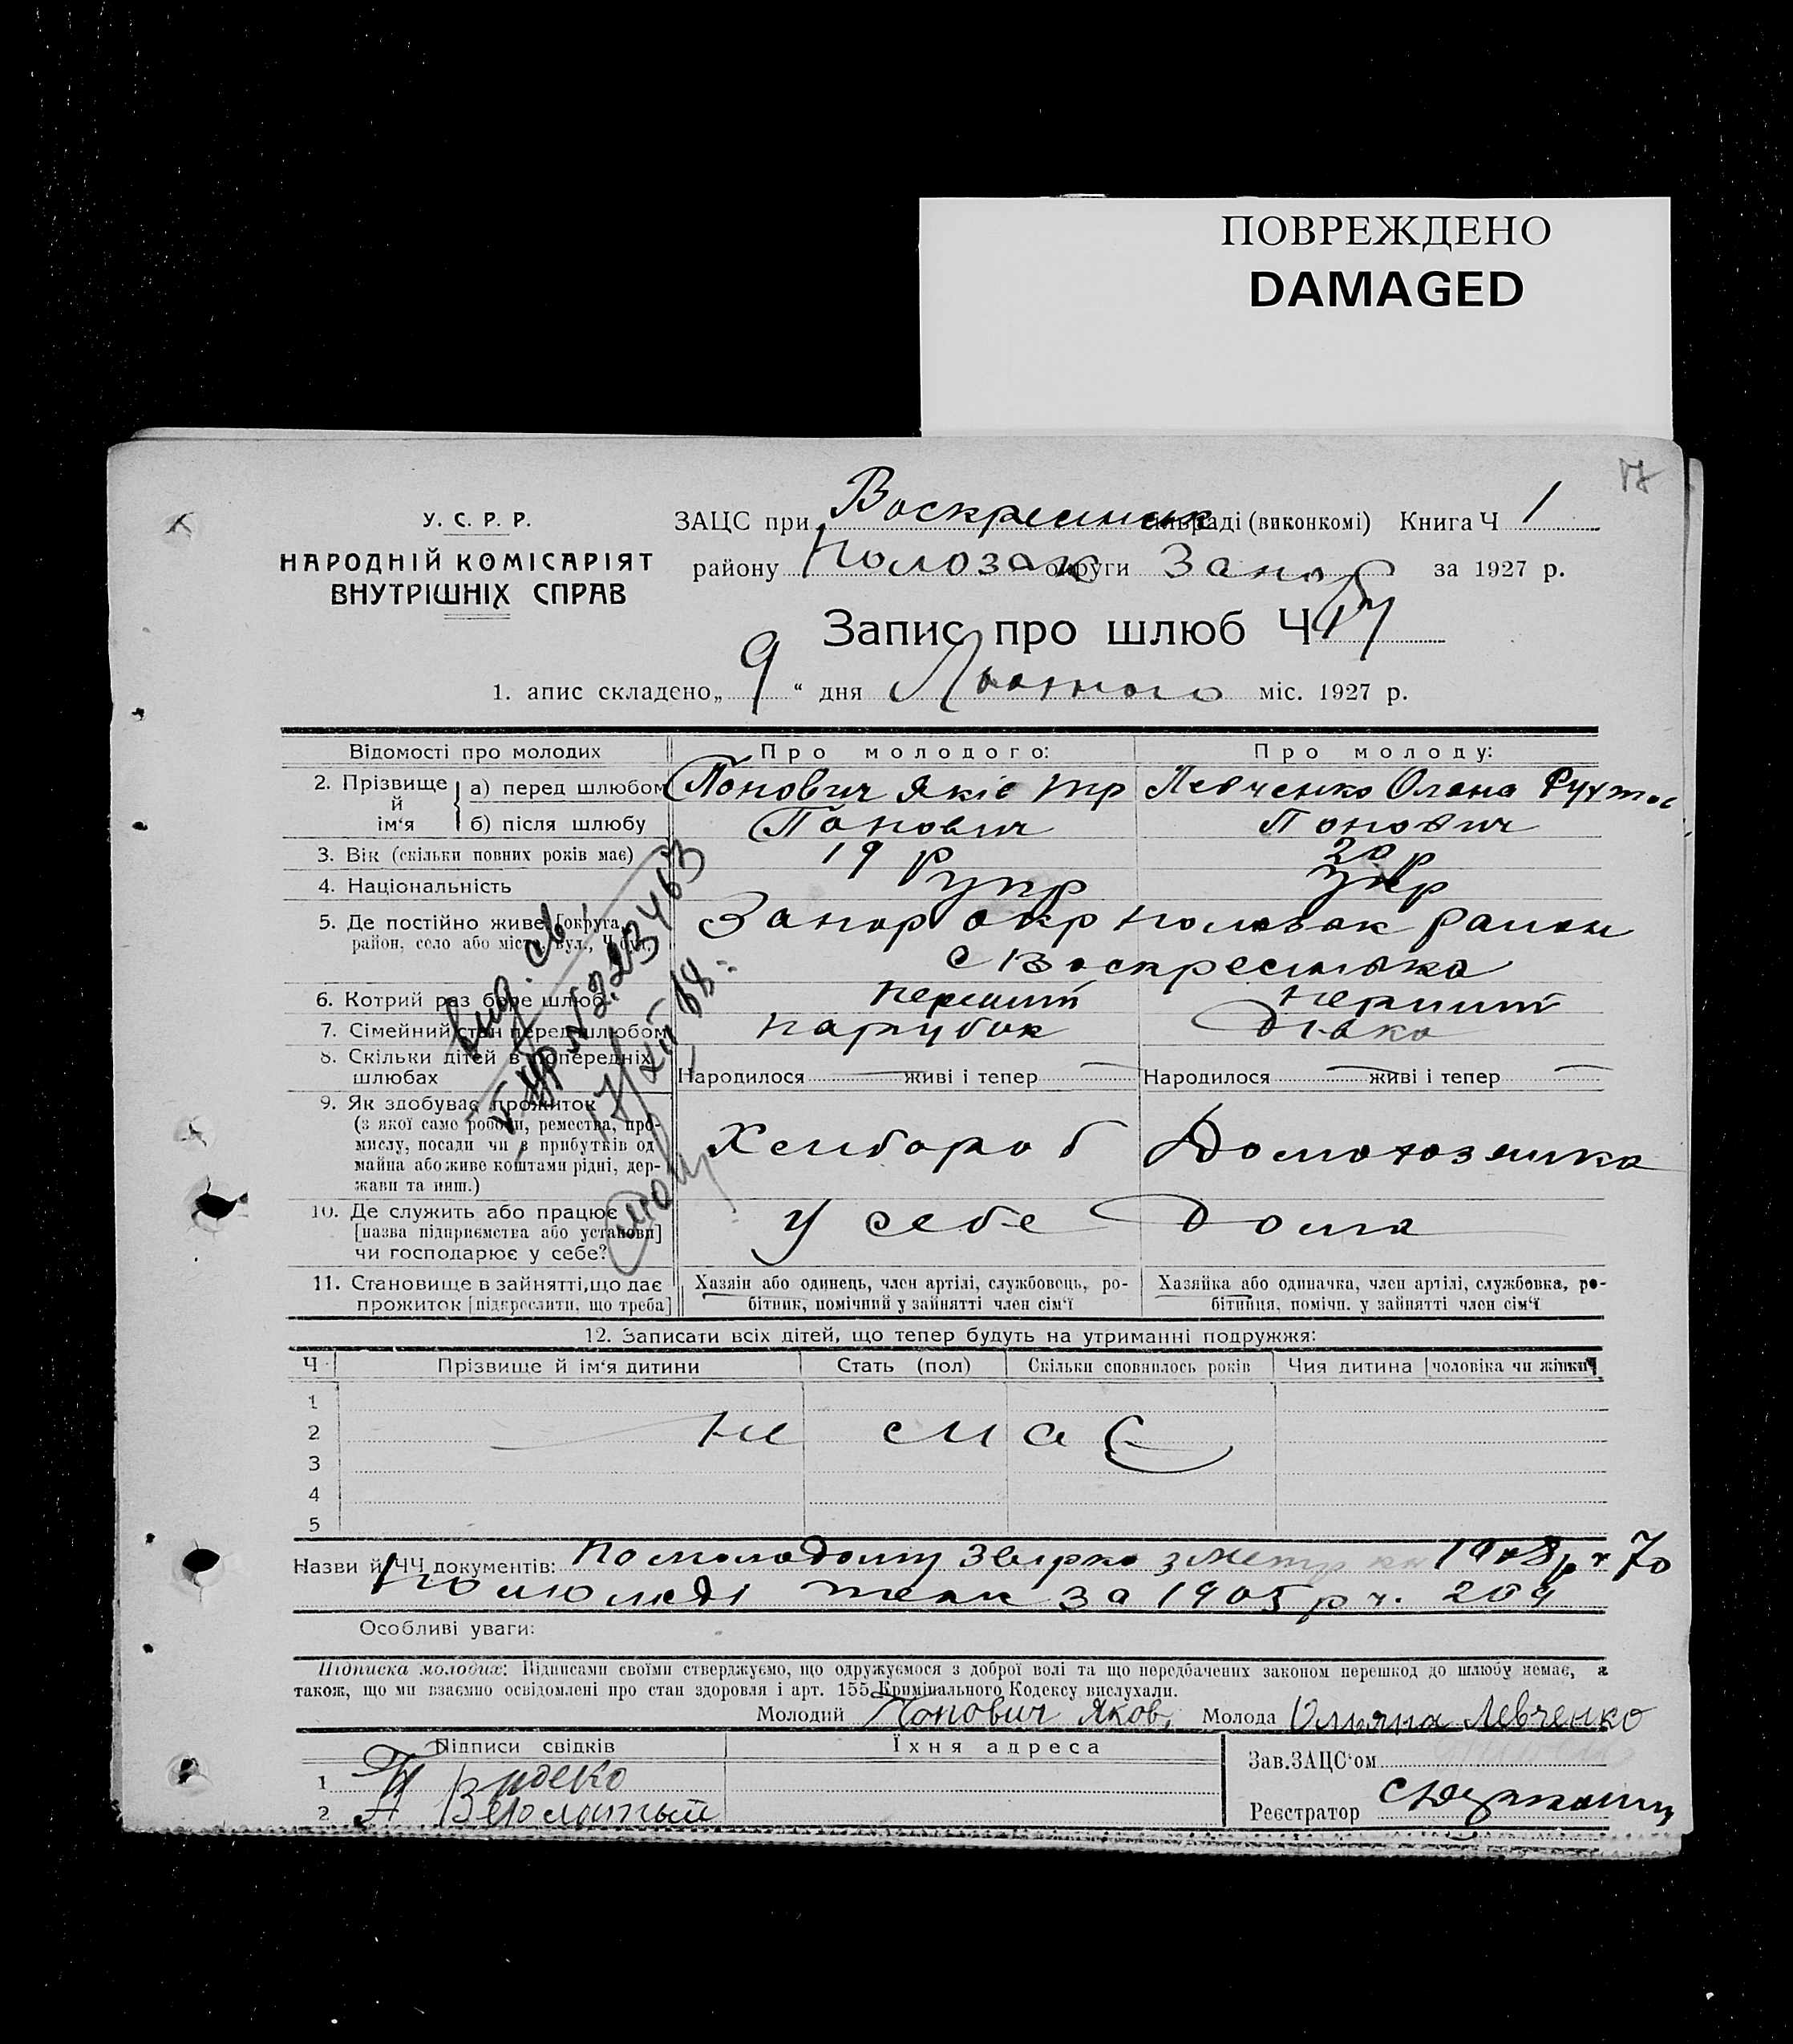 ПОВРЕЖДЕНО
DAMAGED
17
У. С. Р. Р.
НАРОДНІЙ КОМІСАРІЯТ
ВНУТРІШНІХ СПРАВ
ЗАЦС при Воскресенськ сільраді (виконкомі) Книга Ч 1
району Пологак округи Запор за 1927 р.
Запис про шлюб Ч 17
1. апис складено „ 9 “ дня Лютого міс. 1927 р.
Відомості про молодих
Про молодого:
Про молоду:
2. Прізвище й ім‘я
а) перед шлюбом Попович Яків Левченко Олена
б) після шлюбу Попович Попович
3. Вік (скільки повних років має) 19 р 20 р
4. Національність укр укр
5. Де постійно живе [округа, район, село або місто, вул., Ч
Запор окр район
с Воскресенка
6. Котрий раз бере шлюб перший перший
7. Сімейний стан перед шлюбом парубок дівка
8. Скільки дітей в попередніх шлюбах
Народилося живі і тепер Народилося живі і тепер
9. Як здобуває прожиток
(з якої саме роботи, ремества, про-
мислу, посади чи з прибутків од
майна або живе коштами рідні, дер-
жави та инш.)
Хлібороб Домохозяйка
10. Де служить або працює
[назва підприємства або установи]
чи господарює у себе?
у себе дома
11. Становище в зайнятті, що дає
прожиток [підкреслити, що треба]
Хазяїн або одинець, член артілі, службовець, ро-
бітник, помічний у зайнятті член сім‘ї
Хазяйка або одиначка, член артілі, службовка, ро-
бітниця, помічн. у зайнятті член сім‘ї
12. Записати всіх дітей, що тепер будуть на утриманні подружжя:
Ч Прізвище й ім‘я дитини Стать (пол) Скільки сповнилось років Чия дитина [чоловіка чи жінки]
1
2 не має
3
4
5
Назви й ЧЧ документів: По молодому 1908 р ч 70
По молоді за 1905 р ч. 209
Особливі уваги:
Підписка молодих: Підписами своїми стверджуємо, що одружуємося з доброї волі та що передбачених законом перешкод до шлюбу немає, а
також, що ми взаємно освідомлені про стан здоровля і арт. 155 Кримінального Кодексу вислухали.
Молодий Попович Яков, Молода Ольяна Левченко
Підписи свідків
Їхня адреса
Зав. ЗАЦС‘ом
1
2
Реєстратор